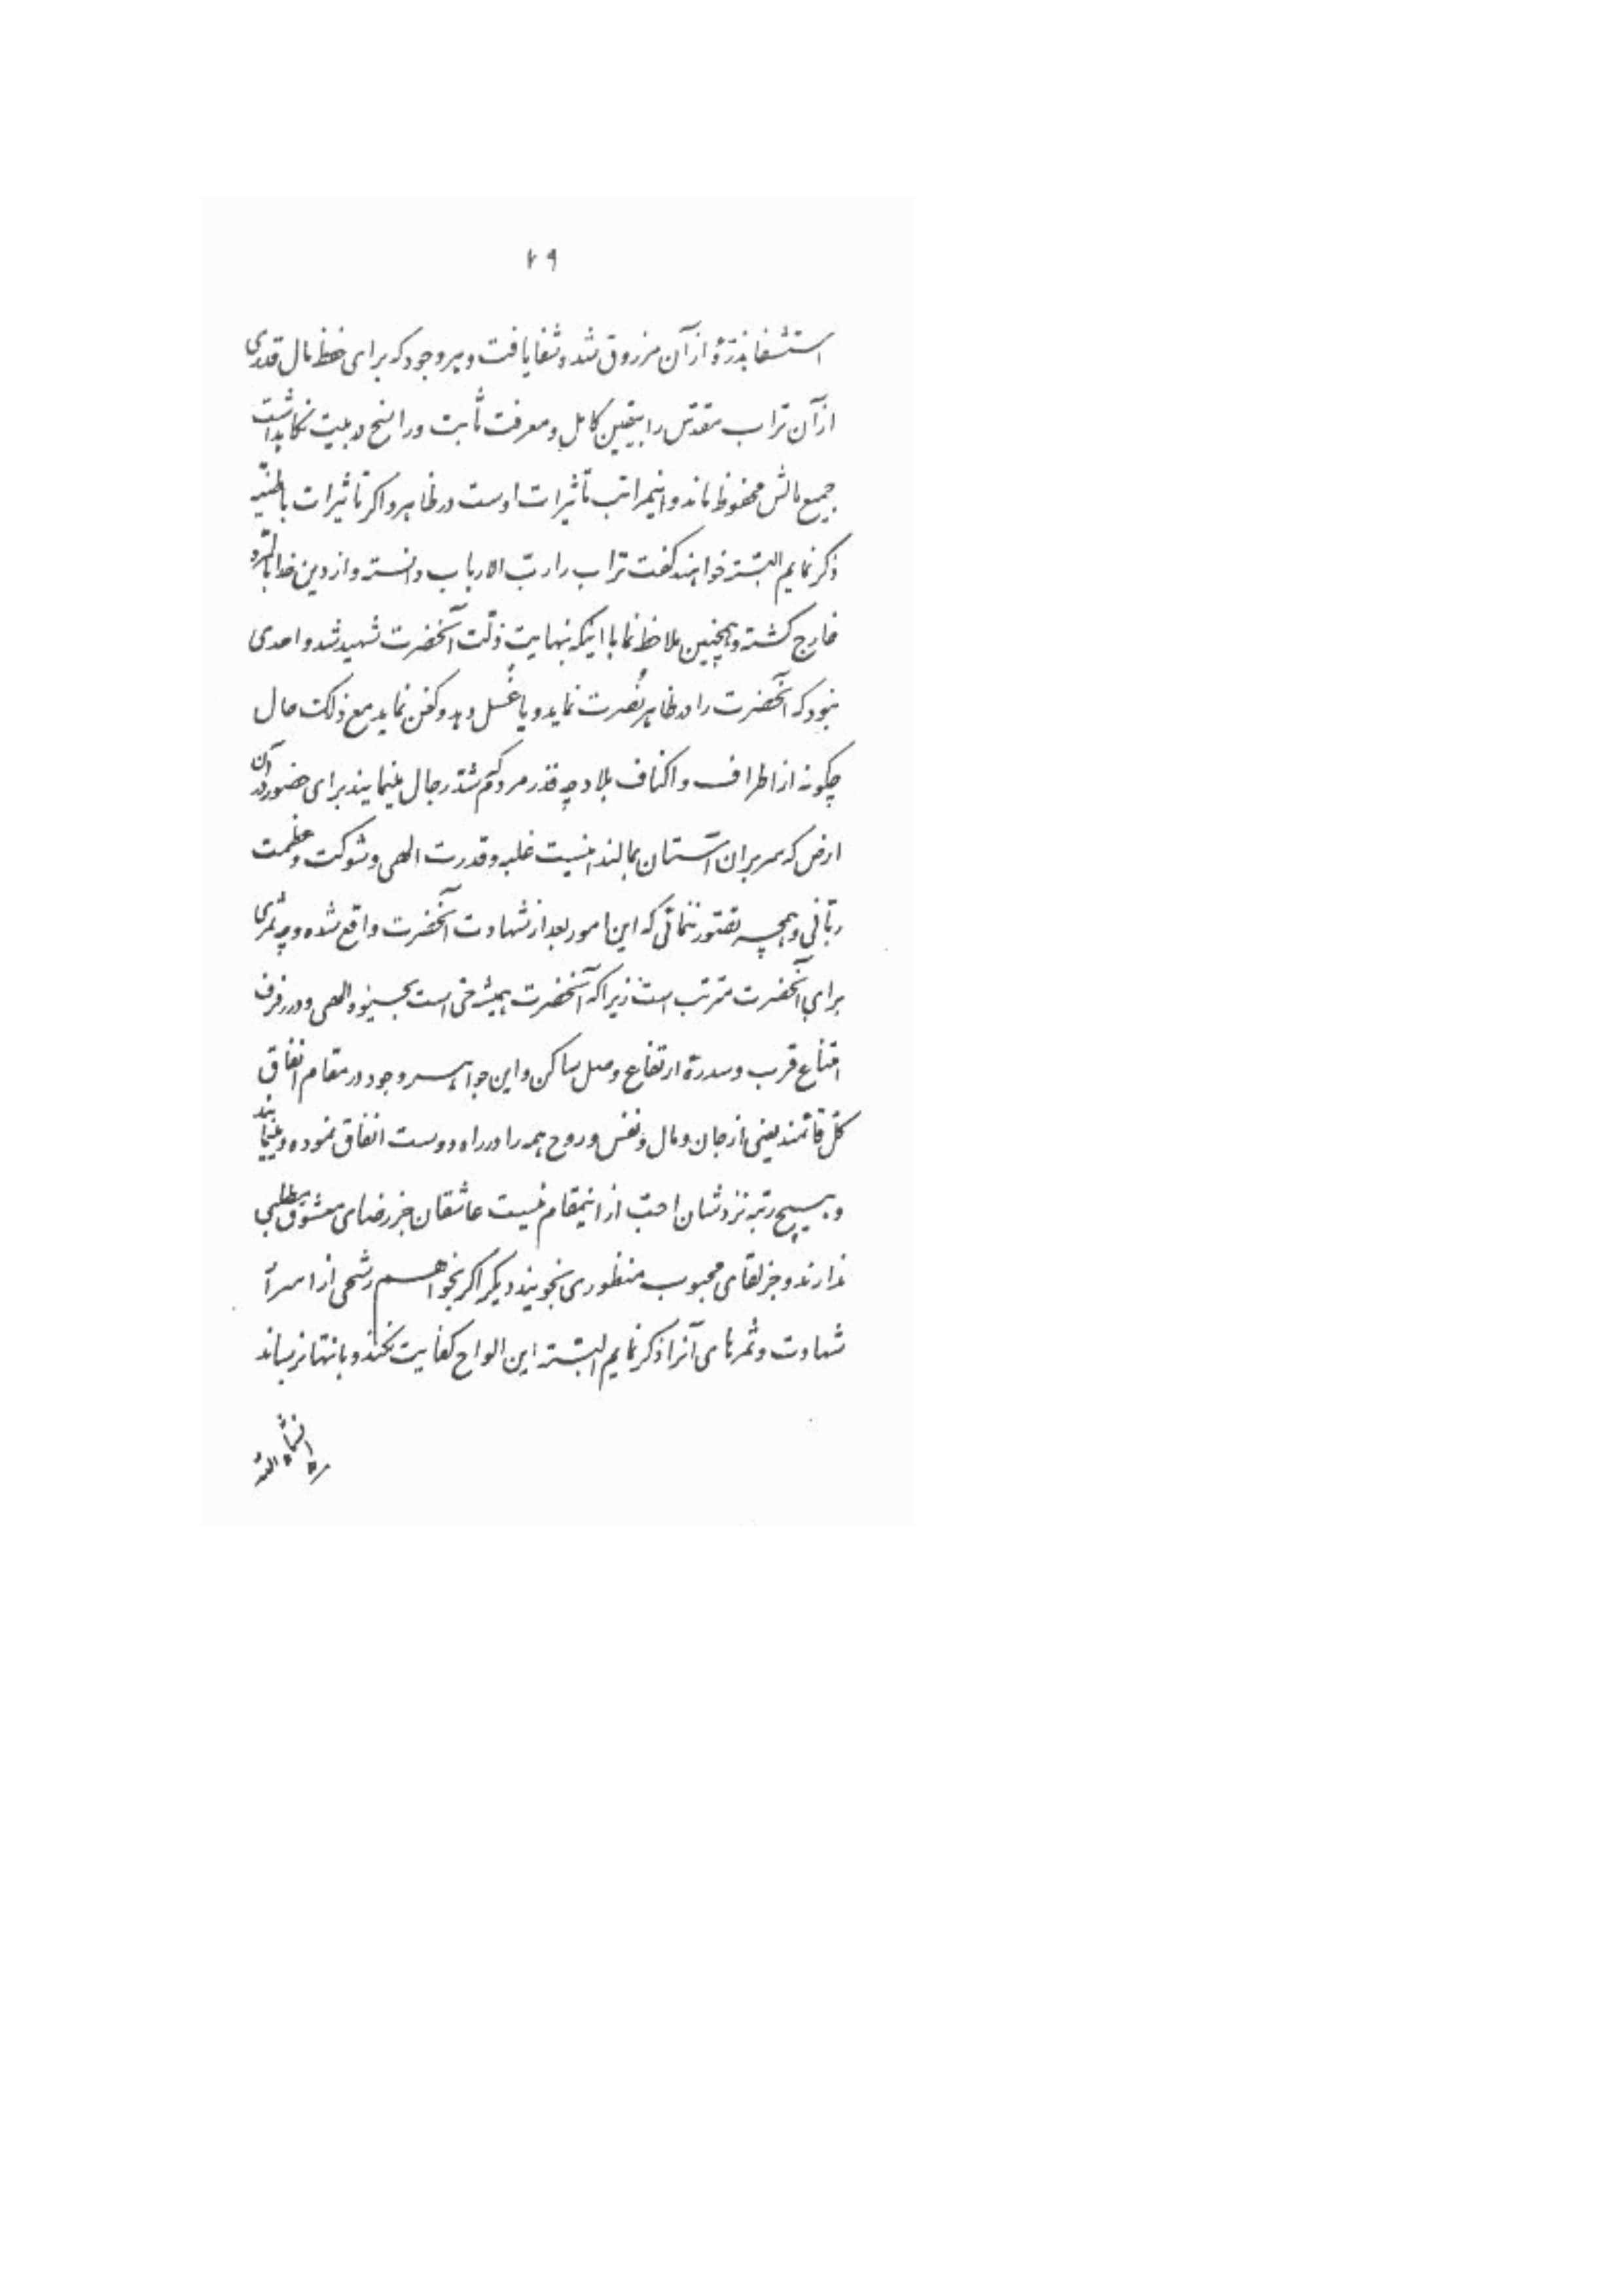 ۶۹
استشفا بذرّهٔ از آن مرزوق شد و شفا یافت و هر وجود که برای حفظ مال قدری
از آن تراب مقدّس را بیقین کامل و معرفت ثابت و راسخ در بیت نگاهداشت
جمیع مالش محفوظ ماند و اینمراتب تأثیرات اوست در ظاهر و اگر تأثیرات باطنیّه
ذکر نمایم البتّه خواهند گفت تراب را ربّ الارباب دانسته و از دین خدا بالمرّه
خارج گشته و همچنین ملاحظه نما با اینکه بنهایت ذلّت آنحضرت شهید شد و احدی
نبود که آنحضرت را در ظاهر نُصرت نماید و یا غُسل دهد و کفن نماید مع ذلک حال
چگونه از اطراف و اکناف بلاد چه قدر مردم شدّ رحال مینمایند برای حضور در آن
ارض که سر بر ان آستان بمالند اینست غلبه و قدرت الهی و شوکت و عظمت
ربّانی و همچه تصّور ننمائی که این امور بعد از شهادت آنحضرت واقع شده و چه ثمری
برای آنحضرت مترتب است زیرا که آنحضرت همیشه حیّ است بحیوة الهی و در رفرف
امتناع قرب و سدرهٔ ارتفاع وصل ساکن و این جواهر وجود در مقام انفاق
کلّ قائمند یعنی از جان و مال و نفس و روح همه را در راه دوست انفاق نموده و مینمایند
و هیچ رتبه نزدشان احبّ از اینمقام نیست عاشقان جز رضای معشوق مطلبی
ندارند و جز لقای محبوب منظوری نجویند دیگر اگر بخواهم رشحی از اسرار
شهادت و ثمرهای آنرا ذکر نمایم البتّه این الواح کفایت نکند و بانتها نرساند
انشاء اللّه